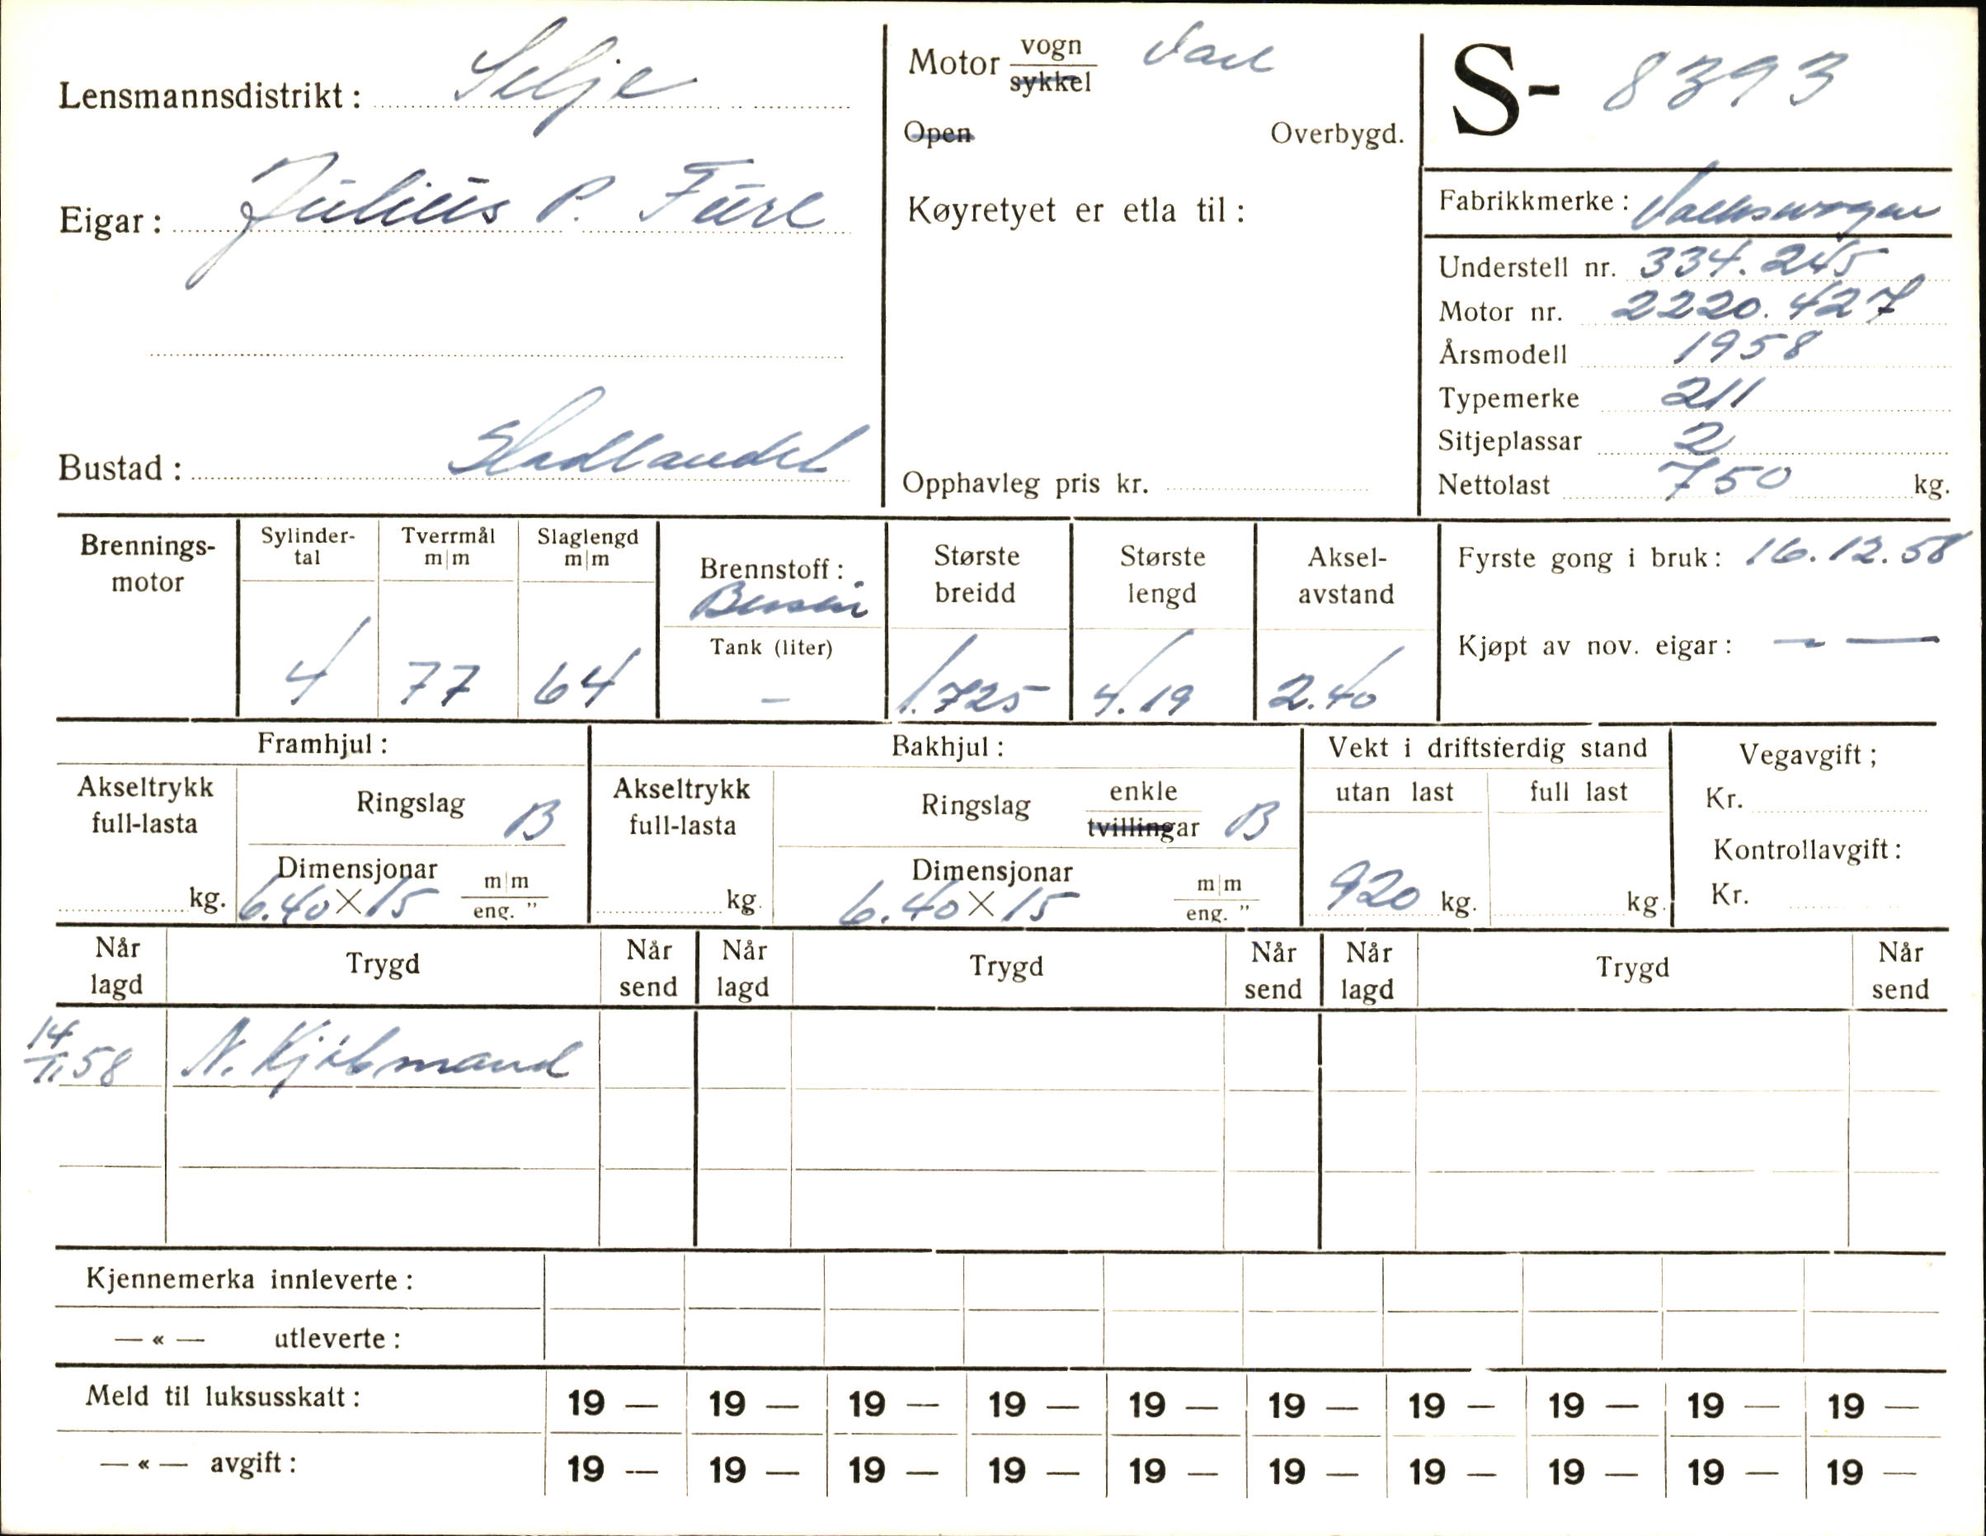 Lensmannsdistrikt: Selje
Eigar: Julius P. Fure
Bustad: Stadlandet
Motor vogn Vare
sykkel
Open Overbygd.
Køyretyet er etla til:
Opphavleg pris kr.
S- 8393
Fabrikkmerke: Volkswagen
Understell nr. 334.245
Motor nr. 2220.427
Årsmodell 1958
Typemerke 211
Sitjeplassar 2
Nettolast 750 kg.
Brennings-
motor
Sylinder-
tal
4
Tverrmål
m|m
77
Slaglengd
m|m
64
Brennstoff:
Bensin
Tank (liter)
-
Største
breidd
1.725
Største
lengd
4.19
Aksel-
avstand
2.40
Fyrste gong i bruk: 16.12.58
Kjøpt av nov. eigar: — —
Framhjul:
Akseltrykk
full-lasta
kg.
Ringslag B
Dimensjonar
6.40 X 15 m|m
eng. "
Bakhjul:
Akseltrykk
full-lasta
kg.
Ringslag enkle
tvillingar B
Dimensjonar
6.40 X 15 m|m
eng. "
Vekt i driftsferdig stand
utan last
920 kg.
full last
kg.
Vegavgift;
Kr.
Kontrollavgift:
Kr.
Når
lagd Trygd Når
send Når
lagd Trygd Når
send Når
lagd Trygd Når
send
14/11 58 N. Kjøbmand
Kjennemerka innleverte:
— « — utleverte:
Meld til luksusskatt: 19 — 19 — 19 — 19 — 19 — 19 — 19 — 19 — 19 — 19 —
— « — avgift: 19 — 19 — 19 — 19 — 19 — 19 — 19 — 19 — 19 — 19 —